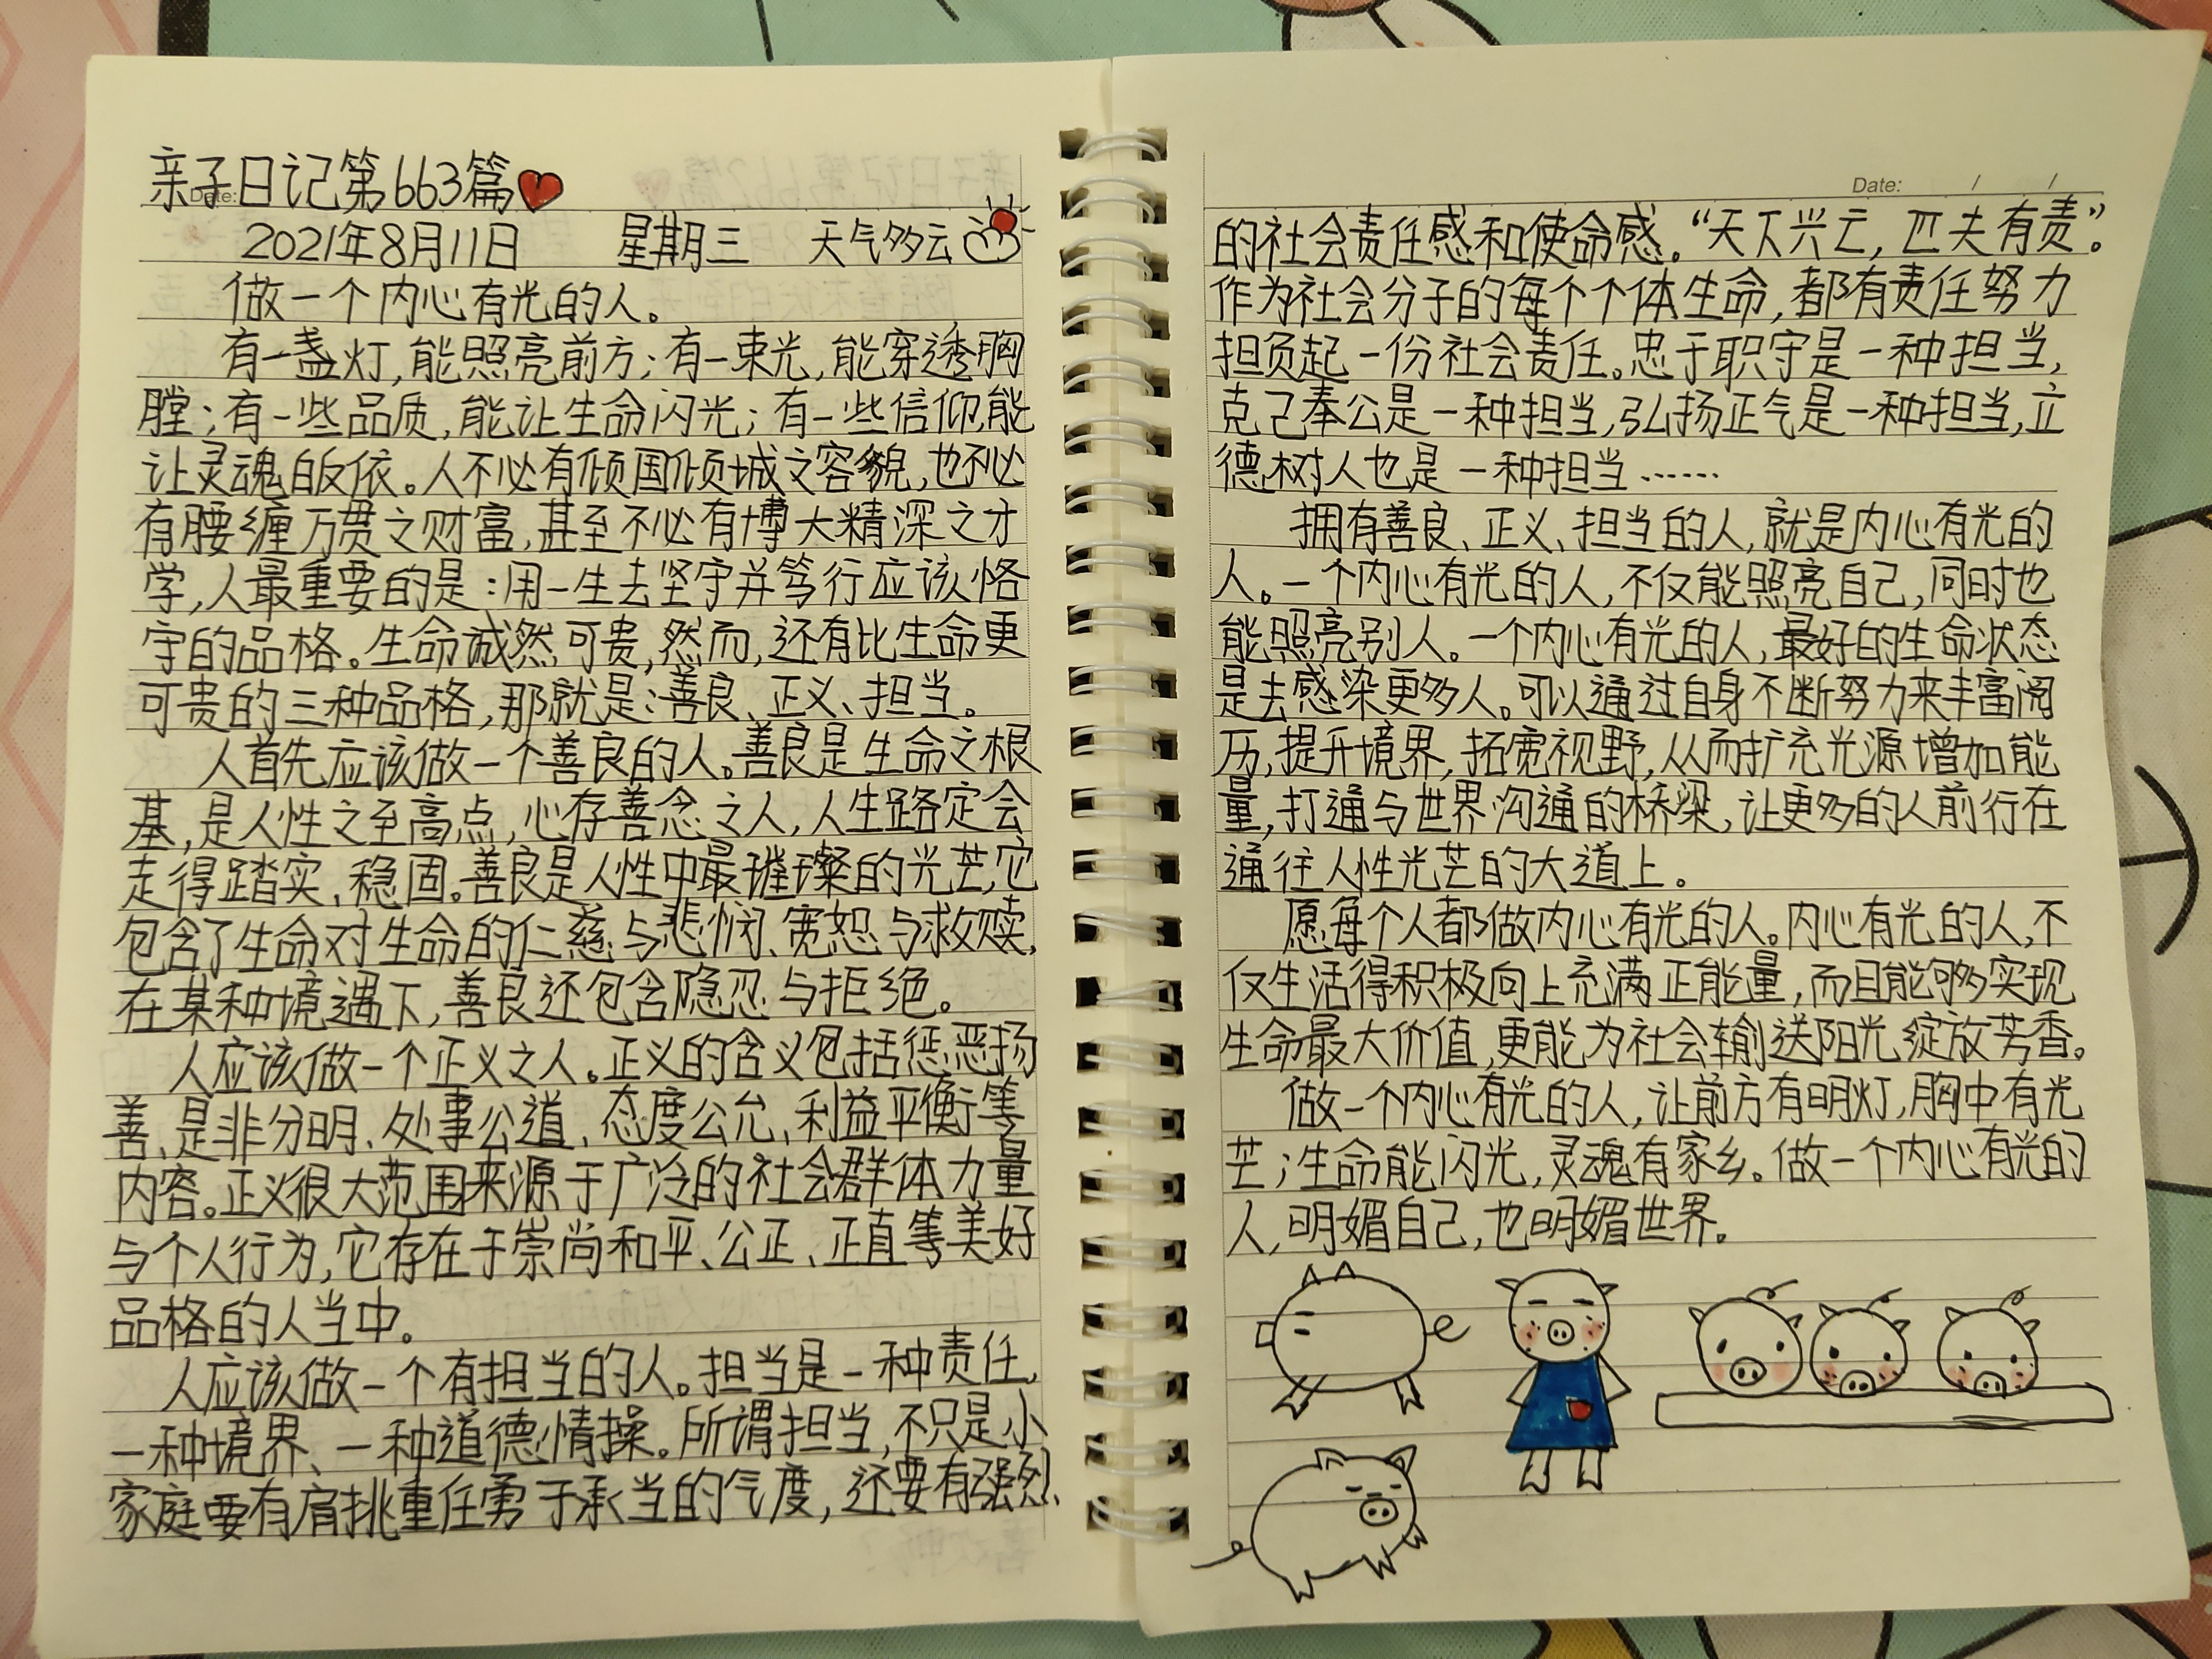 亲子日记第663篇
Date:
2021年8月11日 星期三 天气多云
做一个内心有光的人。
有一盏灯,能照亮前方;有一束光,能穿透胸
膛;有一些品质,能让生命闪光;有一些信仰,能
让灵魂皈依。人不必有倾国倾城之容貌,也不必
有腰缠万贯之财富,甚至不必有博大精深之才
学,人最重要的是:用一生去坚守并笃行应该恪
守的品格。生命诚然可贵,然而,还有比生命更
可贵的三种品格,那就是:善良、正义、担当。
人首先应该做一个善良的人。善良是生命之根
基,是人性之至高点,心存善念之人,人生路定会
走得踏实、稳固。善良是人性中最璀璨的光芒,它
包含了生命对生命的仁慈与悲悯、宽恕与救赎,
在某种境遇下,善良还包含隐忍与拒绝。
人应该做一个正义之人。正义的含义包括惩恶扬
善、是非分明、处事公道、态度公允、利益平衡等
内容。正义很大范围来源于广泛的社会群体力量
与个人行为,它存在于崇尚和平、公正、正直等美好
品格的人当中。
人应该做一个有担当的人。担当是一种责任,
一种境界、一种道德情操。所谓担当,不只是小
家庭要有肩挑重任勇于承当的气度,还要有强烈
Date: / /
的社会责任感和使命感。“天下兴亡,匹夫有责”。
作为社会分子的每个个体生命,都有责任努力
担负起一份社会责任。忠于职守是一种担当,
克己奉公是一种担当,弘扬正气是一种担当,立
德树人也是一种担当……
拥有善良、正义、担当的人,就是内心有光的
人。一个内心有光的人,不仅能照亮自己,同时也
能照亮别人。一个内心有光的人,最好的生命状态
是去感染更多人。可以通过自身不断努力来丰富阅
历,提升境界,拓宽视野,从而扩充光源增加能
量,打通与世界沟通的桥梁,让更多的人前行在
通往人性光芒的大道上。
愿每个人都做内心有光的人。内心有光的人,不
仅生活得积极向上充满正能量,而且能够实现
生命最大价值,更能为社会输送阳光绽放芳香。
做一个内心有光的人,让前方有明灯,胸中有光
芒;生命能闪光,灵魂有家乡。做一个内心有光的
人,明媚自己,也明媚世界。